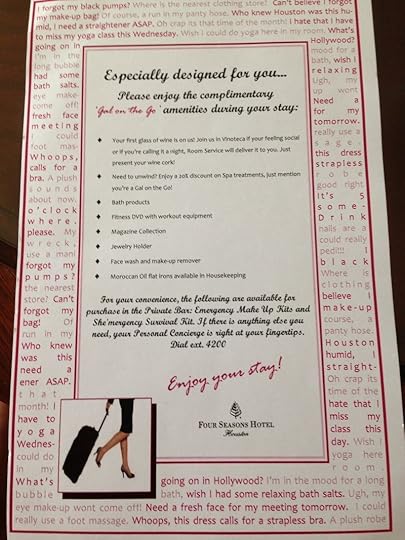 I forgot my black pumps? Where is the nearest clothing store? Can't believe I forgot
my make-up bag! Of course, a run in my panty hose. Who knew Houston was this hu-
mid, I need a straightener ASAP. Oh crap its that time of the month! I hate that I have
to miss my yoga class this Wednesday. Wish I could do yoga here in my room. What's
going on in
I'm in the
long bubble
had some
bath salts.
eye make-
come off!
fresh face
meeting
I could
foot mas-
Whoops,
calls for a
bra. A plush
sounds
about now.
o'clock
where.
please. My
wreck,
use a mani
forgot my
pumps?
the nearest
store? Can't
forgot my
bag! Of
run in my
Who knew
was this
need a
ener ASAP.
that
month! I
have to
yoga
Wednes-
could do
in my
What's
bubble
Especially designed for you...
Please enjoy the complimentary
'Gal on the Go' amenities during your stay:
♦ Your first glass of wine is on us! Join us in Vinoteca if your feeling social
or if you're calling it a night, Room Service will deliver it to you. Just
present your wine cork!
♦ Need to unwind? Enjoy a 20% discount on Spa treatments, just mention
you're a Gal on the Go!
♦ Bath products
♦ Fitness DVD with workout equipment
♦ Magazine Collection
♦ Jewelry Holder
♦ Face wash and make-up remover
♦ Moroccan Oil flat irons available in Housekeeping
For your convenience, the following are available for
purchase in the Private Bar: Emergency Make Up Kits and
She'mergency Survival Kit. If there is anything else you
need, your Personal Concierge is right at your fingertips.
Dial ext. 4200
Enjoy your stay!
FOUR SEASONS HOTEL
Houston
Hollywood?
mood for a
bath, wish I
relaxing
Ugh, my
up wont
Need a
for my
tomorrow.
really use a
sage.
this dress
strapless
robe
good right
It's 5
some-
Drink
nails are a
could really
pedi!!! I
black
Where is
clothing
believe I
make-up
course, a
panty hose.
Houston
humid, I
straight-
Oh crap its
time of the
hate that I
miss my
class this
day. Wish I
yoga here
room.
going on in Hollywood? I'm in the mood for a long
bath, wish I had some relaxing bath salts. Ugh, my
eye make-up wont come off! Need a fresh face for my meeting tomorrow. I could
really use a foot massage. Whoops, this dress calls for a strapless bra. A plush robe